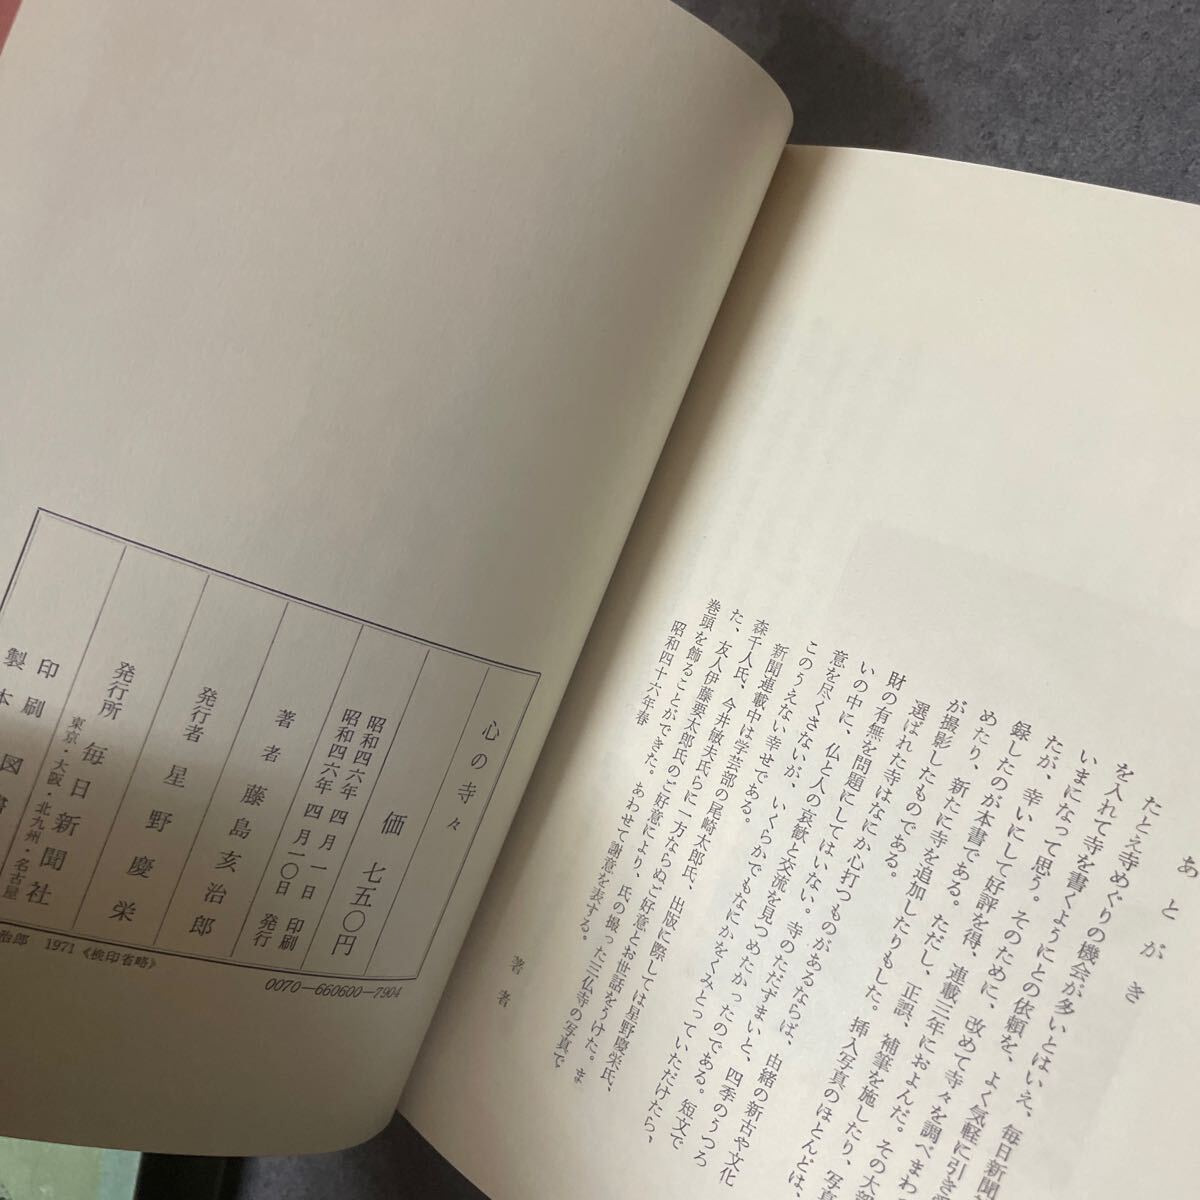 あとがき
たとえ寺めぐりの機会が多いとはいえ、毎日新聞
を入れて寺を書くようにとの依頼を、よく気軽に引き受
いまになって思う。そのために、改めて寺々を調べまわ
たが、幸いにして好評を得、連載三年におよんだ。その大部
録したのが本書である。ただし、正誤、補筆を施したり、写真
めたり、新たに寺を追加したりもした。挿入写真のほとんどは、
が撮影したものである。
選ばれた寺はなにか心打つものがあるならば、由緒の新古や文化
財の有無を問題にしてはいない。寺のただずまいと、四季のうつろ
いの中に、仏と人の哀歓と交流を見つめたかったのである。短文で
意を尽くさないが、いくらかでもなにかをくみとっていただけたら、
このうえない幸せである。
新聞連載中は学芸部の尾崎太郎氏、出版に際しては星野慶栄氏、
森千人氏、今井敏夫氏らに一方ならぬご好意とお世話をうけた。ま
た、友人伊藤要太郎氏のご好意により、氏の撮った三仏寺の写真で
巻頭を飾ることができた。あわせて謝意を表する。
昭和四十六年春
著者
心の寺々
価 七五〇円
昭和四六年 四月 一 日 印刷
昭和四六年 四月一〇日 発行
著者 藤島亥治郎
発行者 星野慶栄
発行所 毎日新聞社
東京・大阪・北九州・名古屋
印刷
製本 図書
治郎 1971《検印省略》
0070—660600—7904